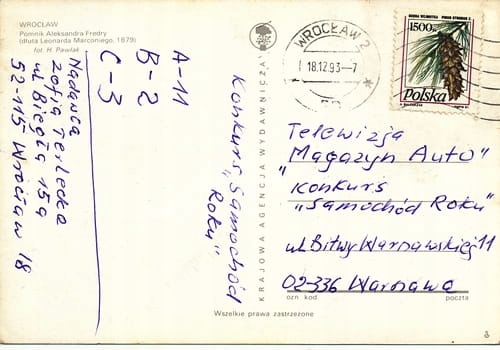 WROCŁAW
Pomnik Aleksandra Fredry
(dłuta Leonarda Marconiego, 1879)
fot. H. Pawlak
A-11
B-2
C-3
Nadawca
Zofia Terlecka
ul Biegła 15a
52-115 Wrocław 18
Konkurs "Samochód
Roku"
KRAJOWA AGENCJA WYDAWNICZA
WROCŁAW 2
18.12.93-7
1500 zł
Polska
Telewizja
"Magazyn Auto"
Konkurs
"Samochód Roku"
ul Bitwy Warszawskiej 11
02-336 Warszawa
ozn kod
poczta
Wszelkie prawa zastrzeżone